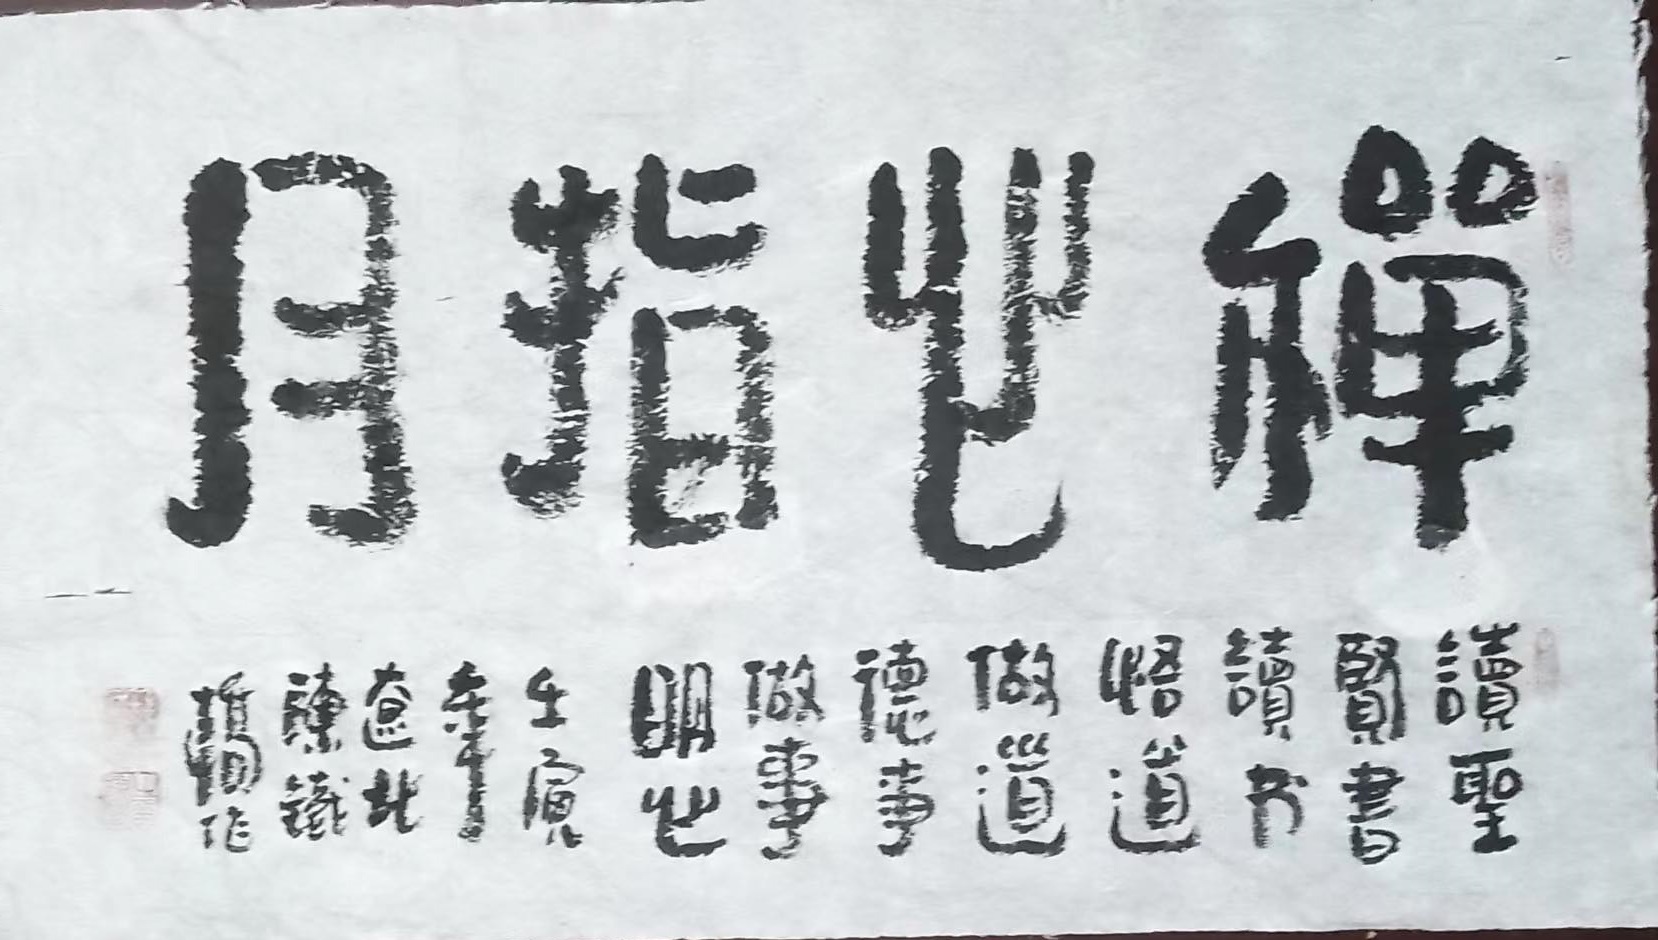 禪世指月
讀聖
賢書
讀书
悟道
做道
德事
做事
明世
壬寅
年
遼北
陳鐵
作